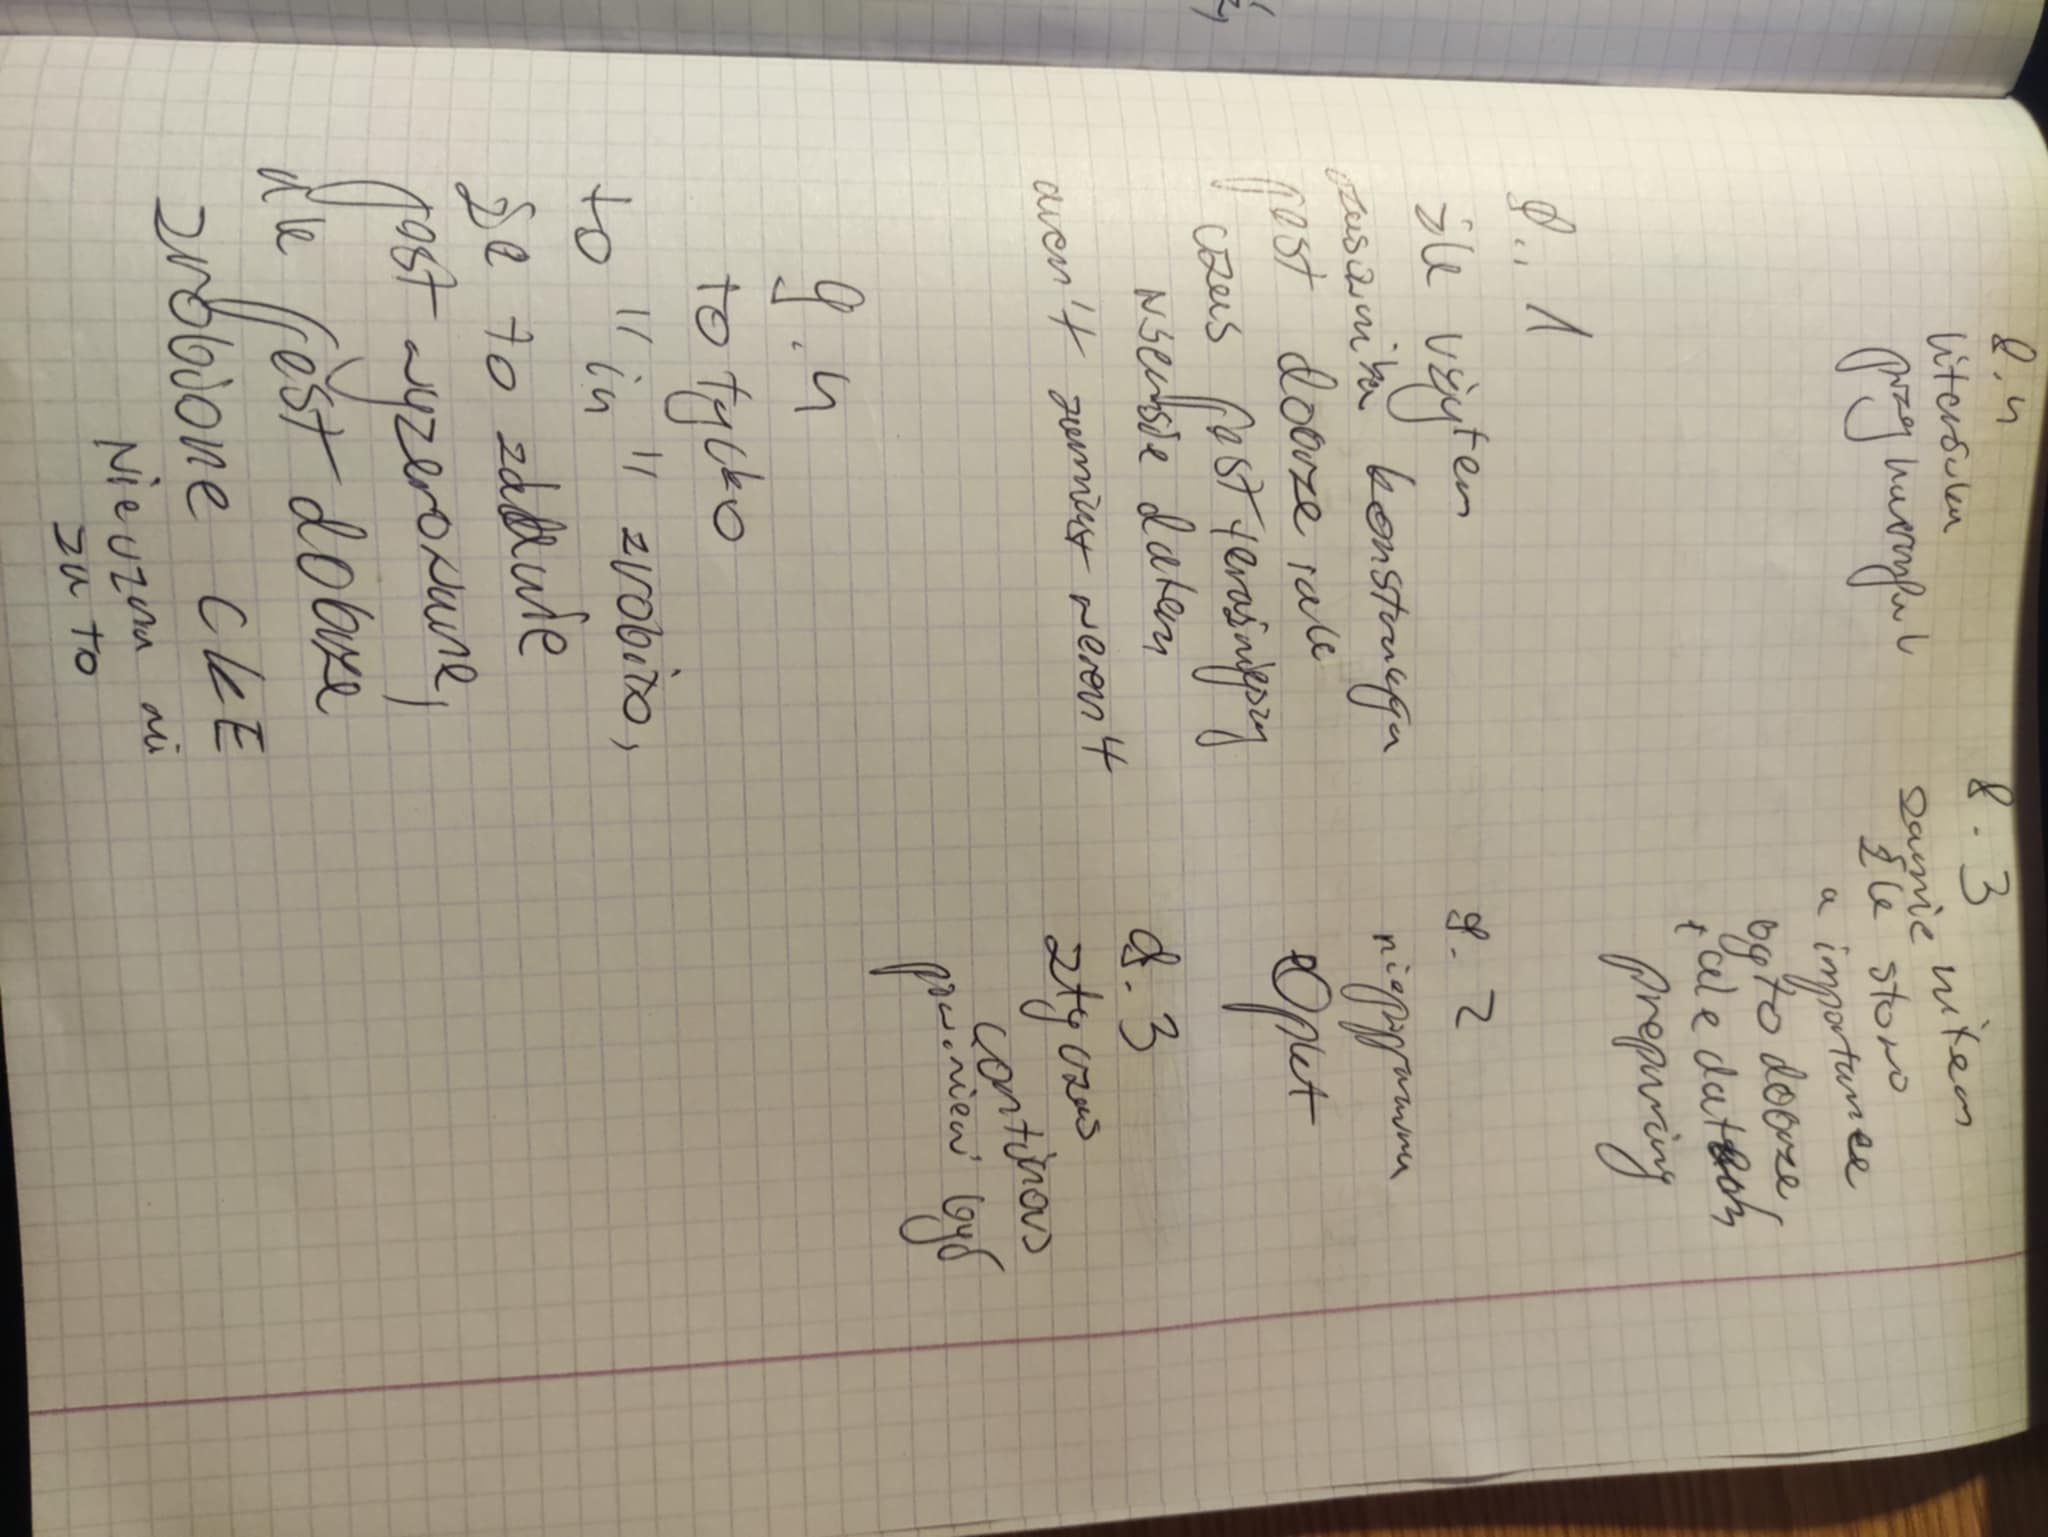 8.4
literówka
przy
8.3
zamieniłem
źle słowo
a importance
było dobrze,
ale dałem
preparing
9.. 1
źle użyłem
czasownika konstrukcja
jest dobrze, ale
czas jest teraźniejszy
w sensie dałem
aren't zamiast weren't
9.2
niepoprawna
9.3
zły czas
continous
powinien być
9.4
to tylko
to "in" zrobiło,
że to zdanie
jest wyzerowane,
ale jest dobrze
zrobione CKE
Nie uzna mi
za to